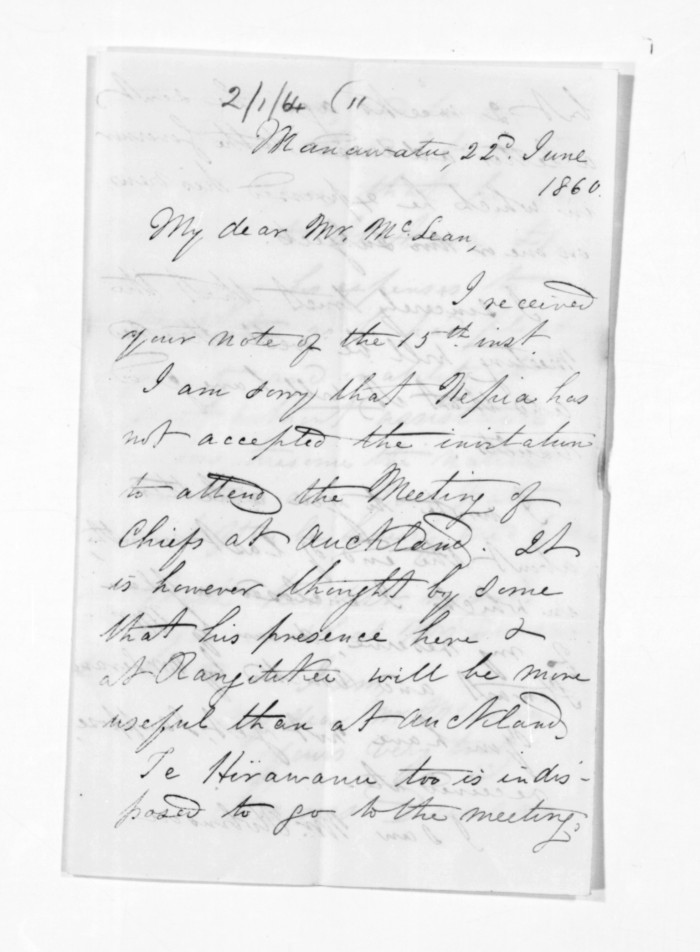 2/1/4 ("
Manawatu, 22d. June
1860.
My dear Mr. McLean,
I received
your note of the 15th inst
I am sorry that Nepia has
not accepted the invitation
to attend the Meeting of
Chiefs at Auckland. It
is however thought by some
that his presence here &
at Rangitikei will be more
useful than at Auckland,
Te Hirawanu too is indis-
posed to go to the meeting,